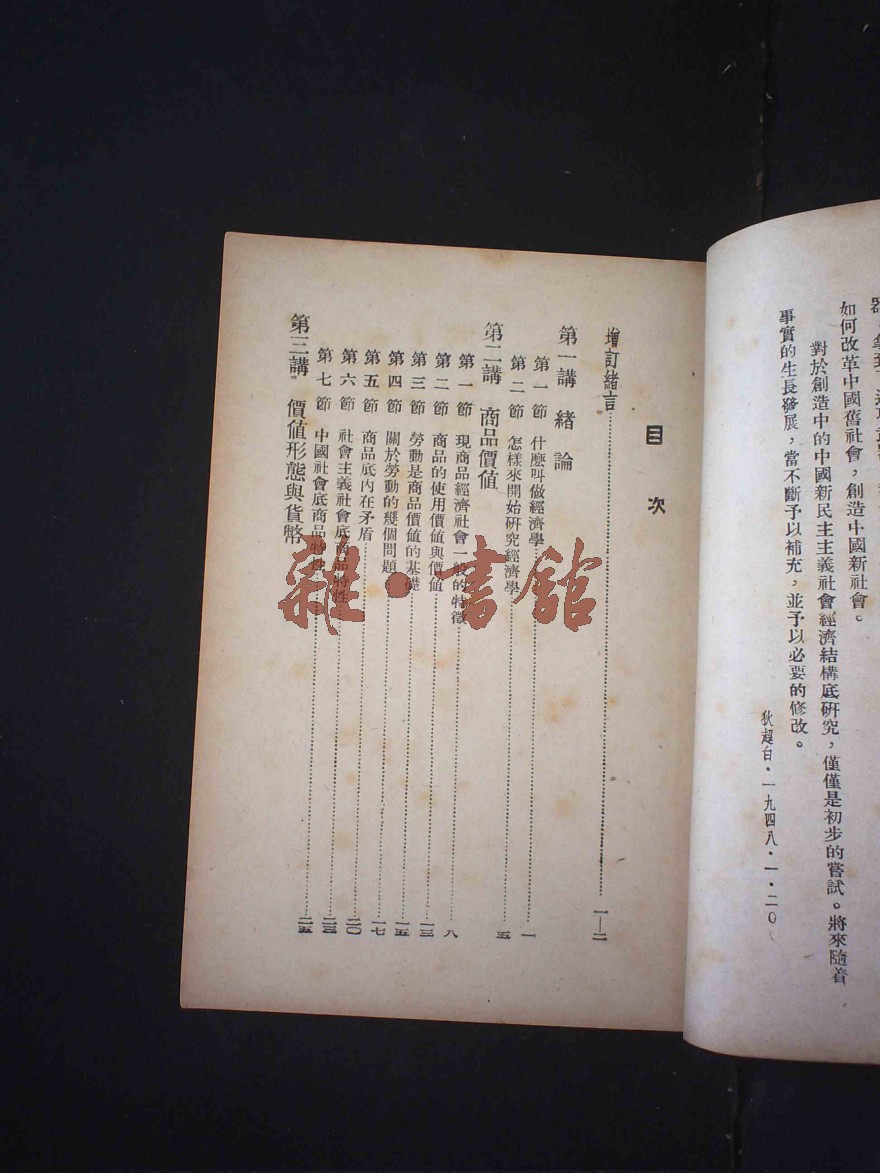 如何改革中國舊社會，創造中國新社會。
對於創造中的中國新民主主義社會經濟結構底研究，僅僅是初步的嘗試。將來隨着
事實的生長發展，當不斷予以補充，並予以必要的修改。
狄超白·一九四八·一·二〇
目次
增訂緒言……一—二
第一講 緒論
第一節 什麽叫做經濟學……一
第二節 怎樣來開始研究經濟學……五
第二講 商品價値
第一節 現商品經濟社會一般的特徵……八
第二節 商品的使用價値與價値……一三
第三節 勞動是商品價値的基礎……一五
第四節 關於勞動的幾個問題……一七
第五節 商品底內在矛盾……二〇
第六節 社會主義社會底商品特性……二三
第七節 中國社會底商品特性……二五
第三講 價値形態與貨幣
雜·書館